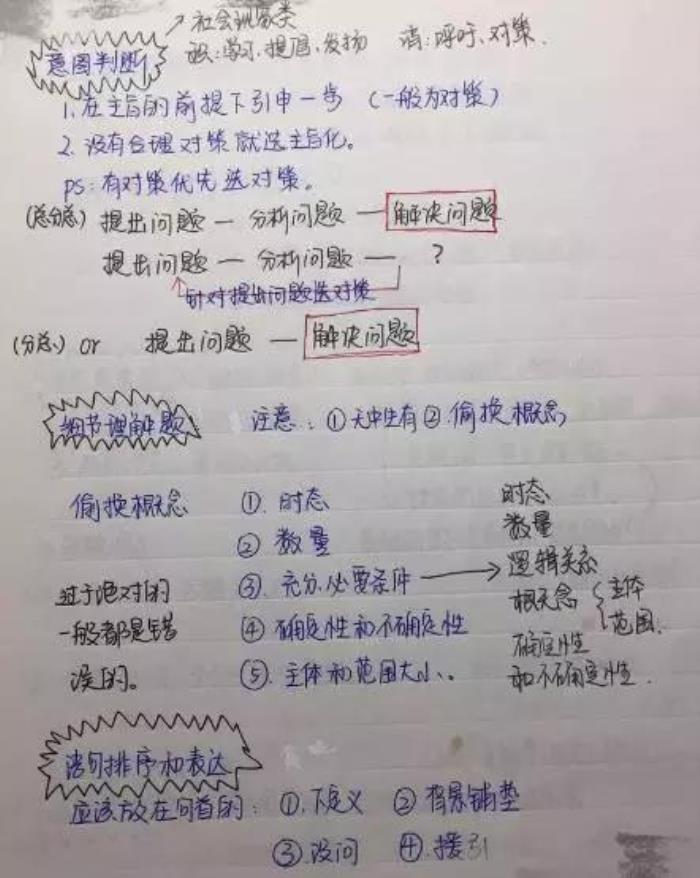 ↗ 社会现象类
意图判断 积:学习、提倡、发扬 消:呼吁、对策.
1. 在主旨的前提下引申一步 (一般为对策)
2. 没有合理对策就选主旨化。
PS:有对策优先选对策。
(总分总) 提出问题 — 分析问题 — 解决问题
提出问题 — 分析问题 — ?
针对提出问题选对策
(分总) or 提出问题 — 解决问题
细节理解题 注意:①无中生有②.偷换概念
偷换概念 ①.时态
② 数量
③.充分必要条件
④.确定性和不确定性
⑤.主体和范围大小。
过于绝对的
一般都是错
误的。
时态
数量
逻辑关系
概念 { 主体
范围.
确定性
和不确定性.
语句排序和表达
应该放在句首的:①.下定义 ② 背景铺垫
③设问 ④.援引